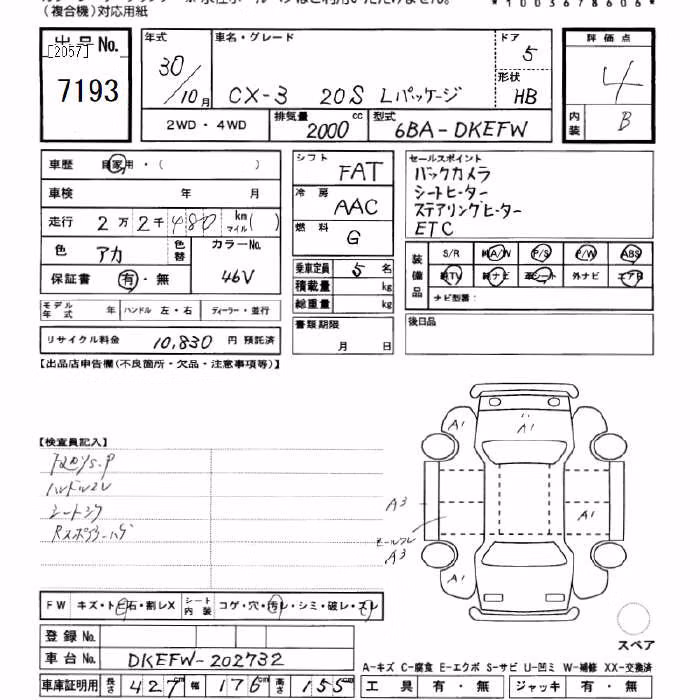 (複合機)対応用紙
*1003678606*
出品No.
[2057]
7193
年式
30/10月
車名・グレード
CX-3 20S Lパッケージ
ドア
5
形状
HB
2WD・4WD
排気量
2000 cc
型式
6BA-DKEFW
評価点
4
内装
B
車歴 自家用・( )
車検 年 月
走行 2万2千480 km マイル( )
色 アカ 色替 カラーNo. 46V
保証書 有・無
モデル年式 年 ハンドル 左・右 ディーラー・並行
リサイクル料金 10,830 円 預託済
シフト FAT
冷房 AAC
燃料 G
乗車定員 5 名
積載量 kg
総重量 kg
書類期限
月 日
セールスポイント
バックカメラ
シートヒーター
ステアリングヒーター
ETC
装備品
S/R 純A/W P/S P/W ABS
純TV 純ナビ 革シート 外ナビ エアB
ナビ型番:
後日品
【出品店申告欄(不良箇所・欠品・注意事項等)】
【検査員記入】
ハンドルスレ
シートシワ
A1
A1
A3
A1
モールスレ
A3
A1
A1
スペア
FW キズ・トビ石・割レX シート内装 コゲ・穴・汚レ・シミ・破レ・スレ
登録No.
車台No. DKEFW-202732
車庫証明用 長さ 427cm 幅 176cm 高さ 155cm
A-キズ C-腐食 E-エクボ S-サビ U-凹ミ W-補修 XX-交換済
工具 有・無 ジャッキ 有・無